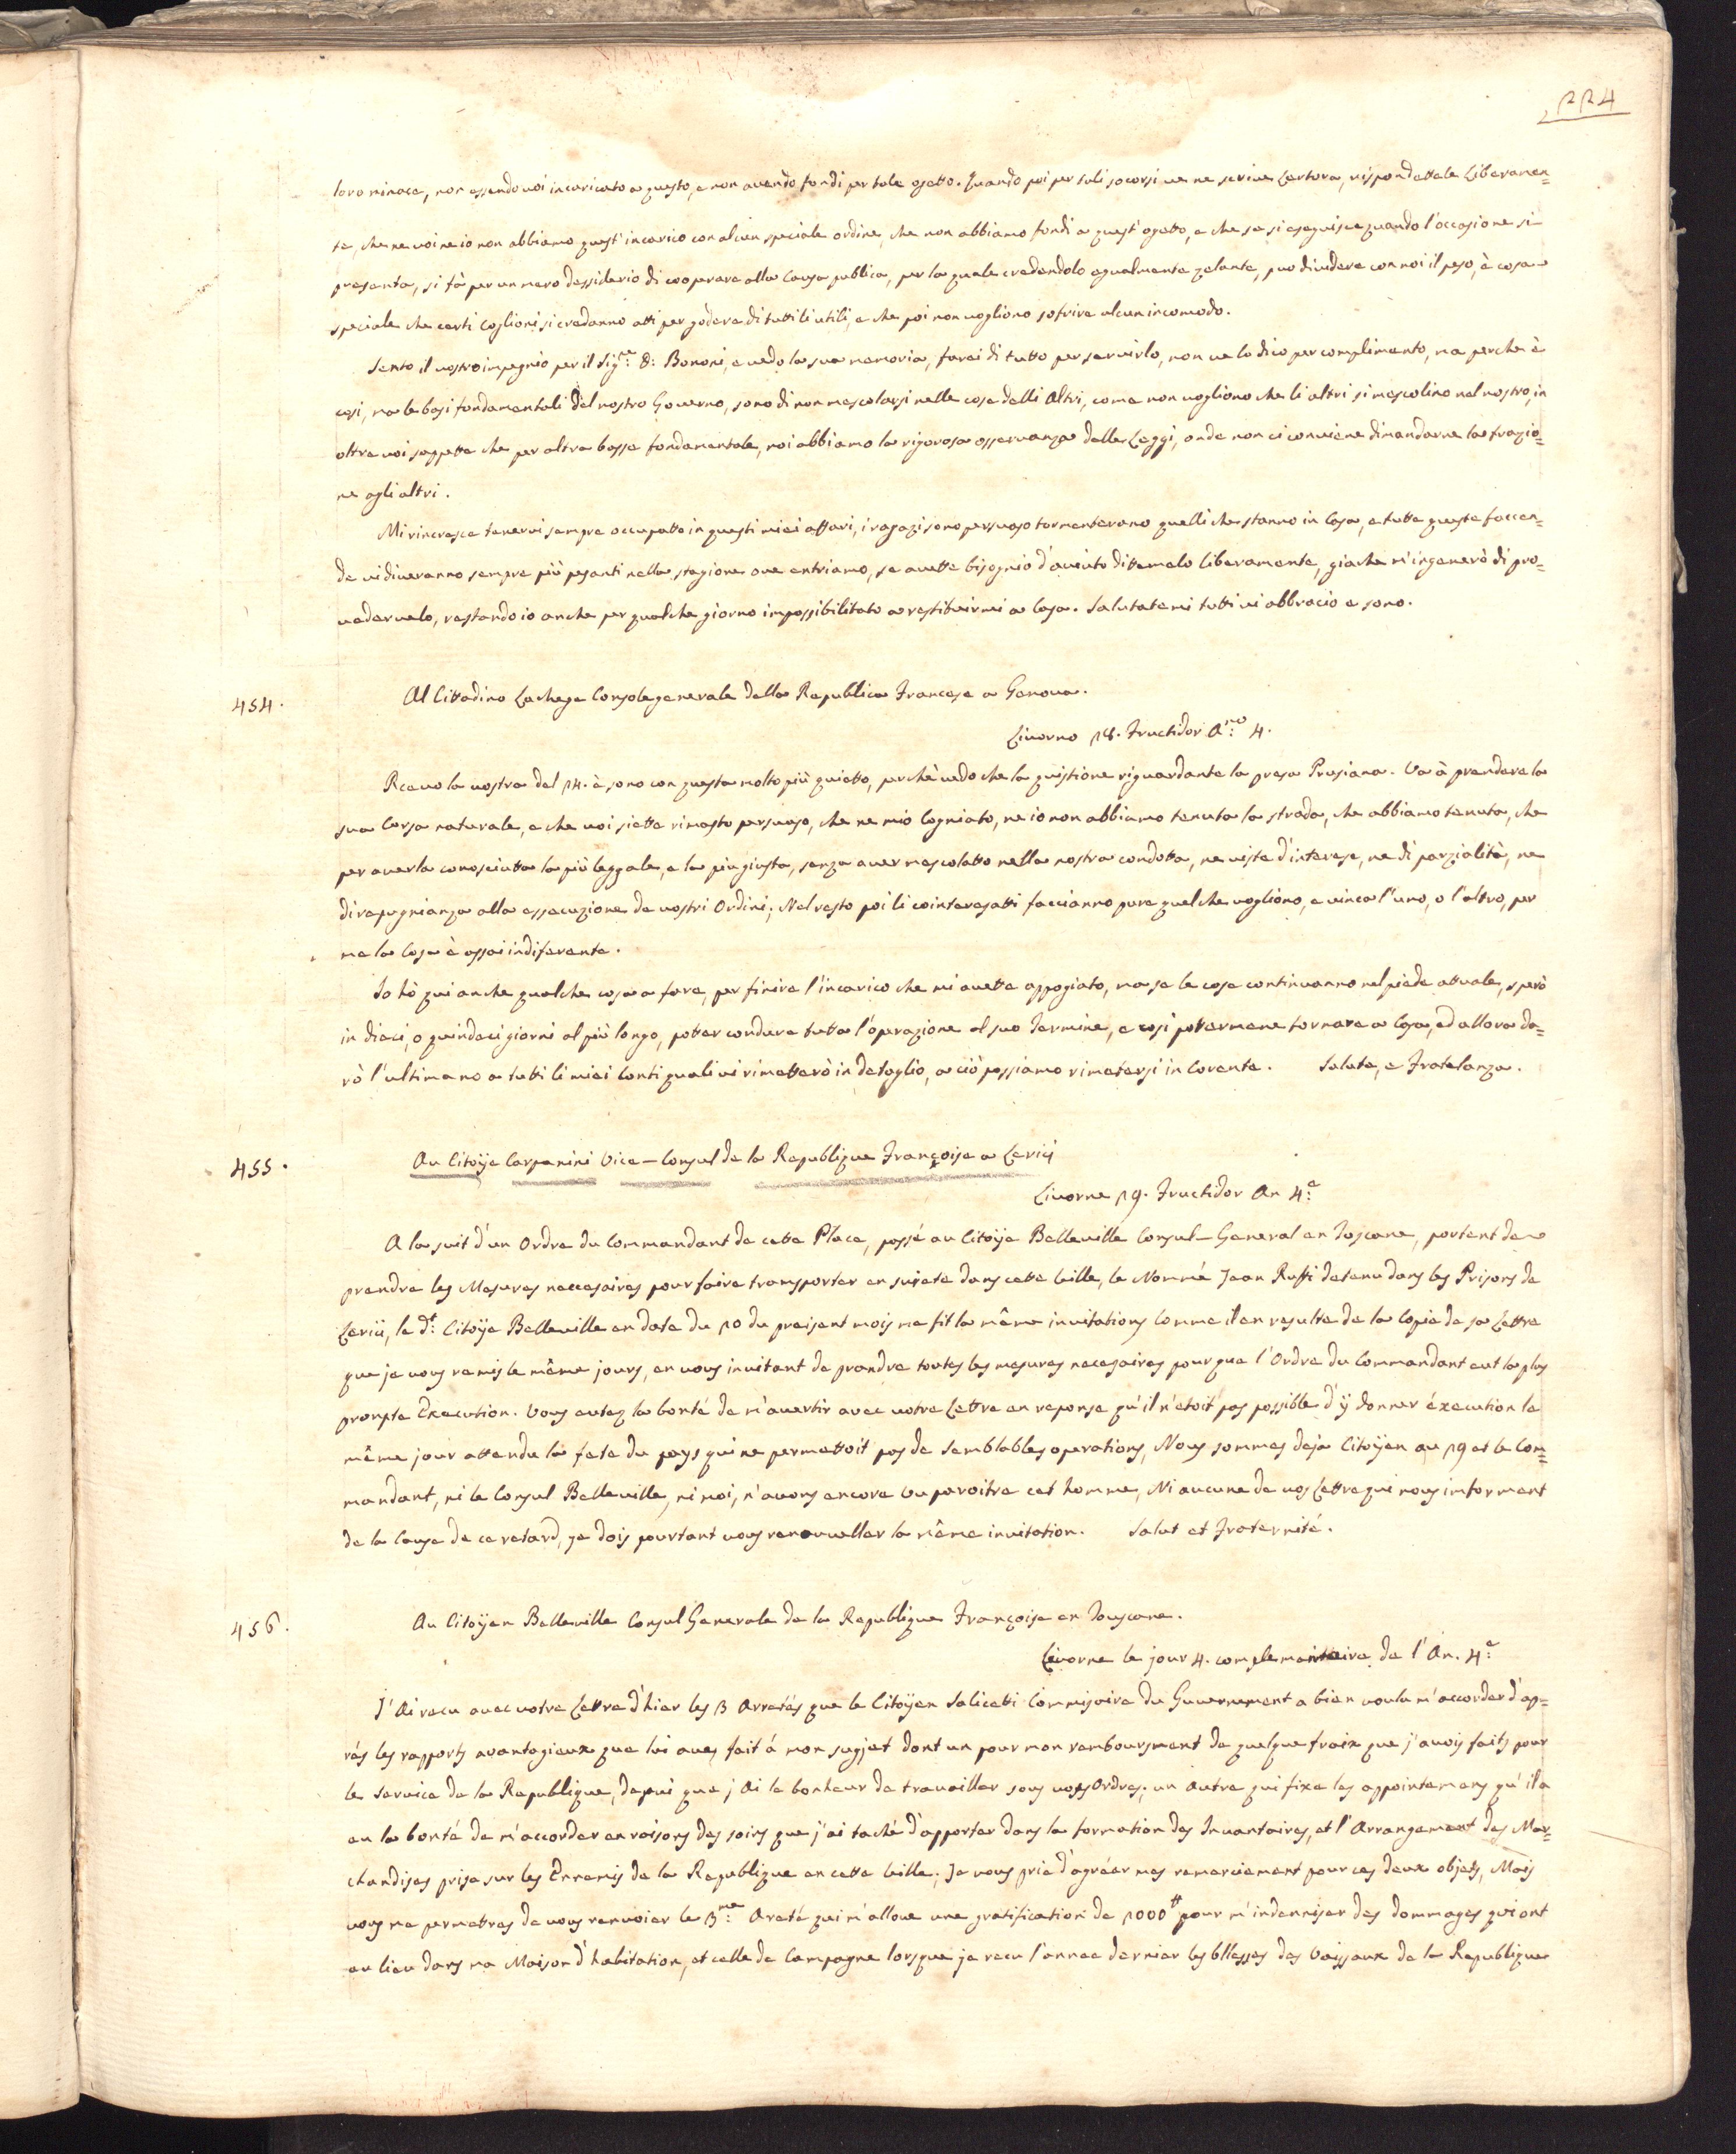 224
loro minace, non essendo voi incaricato a questo, e non avendo fondi per tale ogetto. Quando poi per tali socorsi ve ne scrive Certora, rispondettele Liberamen=
te, che ne voi ne io non abbiamo quest'incarico con alcun speciale ordine, che non abbiamo fondi a quest'ogetto, e che se si eseguisce quando l'occasione si
presenta, si fà per un mero dessiderio di cooperare alla Causa publica, per la quale credendolo egualmente zelante, puo dividere con noi il peso, è cosa
speciale che certi Coglioni si credanno atti per godere di tutti li utili, e che poi non vogliono sofrire alcun incomodo.
Sento il vostro impegnio per il Sig:re D: Bononi, e vedo la sua memoria, farei di tutto per servirlo, non ve lo dico per complimento, ma perche è
cosi, ma le basi fondamentali del nostro Governo, sono di non mescolarsi nelle cose delli Altri, come non vogliono che li altri si mescolino nel nostro, in
oltre voi sappette che per altra basse fondamentale, noi abbiamo la rigorosa osservanza delle Leggi, onde non ci conviene dimandarne la frazio=
ne agli altri.
Mi rincresce tenervi sempre occupatto in questi miei affari, i ragazi sono persuaso tormenterano quelli che stanno in Casa, e tutte queste faccen=
de vi diveranno sempre più pesanti nella stagione ove entriamo, se avette bisognio d'aviuto dittemelo liberamente, giache m'ingenerò di pro=
vedervelo, restando io anche per qualche giorno impossibilitato a restituirmi a Casa. Salutatemi tutti vi abbracio e sono.
454. Al Cittadino Lachege Console generale della Republica Francese a Genova.
Livorno 18. Fructidor A:no 4.
Rcevo la vostra del 14. è sono con questa molto più quietto, perchè vedo che la quistione riguardante la presa Prusiana. Va à prendere la
sua Corsa naturale, e che voi siette rimasto persuaso, che ne mio Cogniato, ne io non abbiamo tenuta la strada, che abbiamo tenuta, che
per averla conosciutta la più leggale, e la piu giusta, senza aver mescolatto nella nostra condotta, ne viste d'interese, ne di parzialità, ne
di repugnianza alla essecuzione de vostri Ordini; Nel resto poi li cointeresatti faccianno pure quel che vogliono, e vinca l'uno, o l'altro, per
me la Cosa è assai indiferente.
Io hò qui anche qualche cosa a fare, per finire l'incarico che mi avette appogiato, ma se le cose continuanno nel piede attuale, sperò
in dieci, o quindeci giorni al più longo, potter condure tutta l'operazione al suo Termine, e cosi potermene tornare a Casa, ed allora da=
rò l'ultima no a tutti li miei Conti quali vi rimetterò in detaglio, a ciò possiamo rimetersi in Corente. Salute, e Fratelanza.
455. Au Citoÿe Carpanini Vice-Consul de la Republique Françoise a Lerici
Livorne 19. Fructidor An 4:e
A la suit d'un Ordre du Commandant de cette Place, possé au Citoÿe Belleville Consul-General en Toscane, portent de
prendre les Mesures neccesaires pour faire transporter en sureté dans cette Ville, le Nommé Jean Ruffi detenu dans les Prisons de
Lerici, le d:t Citoÿe Belleville en date du 10 du preisent mois me fit la même invitations Comme il en resulte de la Copie de sa Lettre
que je vous remis le même jours, en vous invitant de prandre toutes les mesures necesaires pour que l'Ordre du Commandant eut la plus
prompte Execution. Vous eutez la bonté de m'avertir avec votre Lettre en reponse qu'il n'étoit pas possible d'ÿ donner éxecution le
même jour attendu la feste du pays qui ne permettoit pas de semblables operations, Nous sommes deja Citoÿen au 19 et le Com=
mandant, ni le Consul Belleville, ni moi, n'avons encore vu paroitre cet homme, Ni aucune de vos Lettre qui nous informent
de la Cause de ce retard, je dois pourtant vous renouveller la même invitation. Salut et Fraternité.
456. Au Citoÿen Belleville Consul Generale de la Republique Françoise en Touscane.
Livorne le jour 4. complementaire de l'An. 4:e
J'Ai recu avec votre Lettre d'hier les 3 Arretés que le Citoÿen Salicetti Commisaire du Guvernement a bien voulu m'accorder d'ap=
rés les rapports avantagieux que lui aves fait á mon sugjet dont un pour mon remboursment de quelque fraix que j'avois faits pour
le Service de la Republique, depui que j'Ai le bonheur de travailler sous vos Ordres; un Autre qui fixe les appointemens qu'il a
eu la bonté de m'accorder en raisons des soins que j'ai taché d'apporter dans la formation des Inventaires, et l'Arrangement des Mar=
chandises prise sur les Ennemis de la Republique en cette Ville; Je vous prie d'agréer mes remerciement pour ces deux objets, Mais
vous me permettres de vous renvoier le 3:me Areté qui m'alloue une gratification de 1000# pour m'indenniser des dommages qui ont
eu lieu dans ma Maison d'habitation, et celle de Campagne lorsque je recu l'annee dernier les bllesses des Vaissaux de la Republique